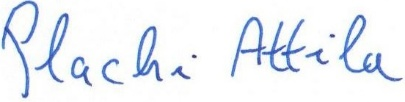 Plachi Attila